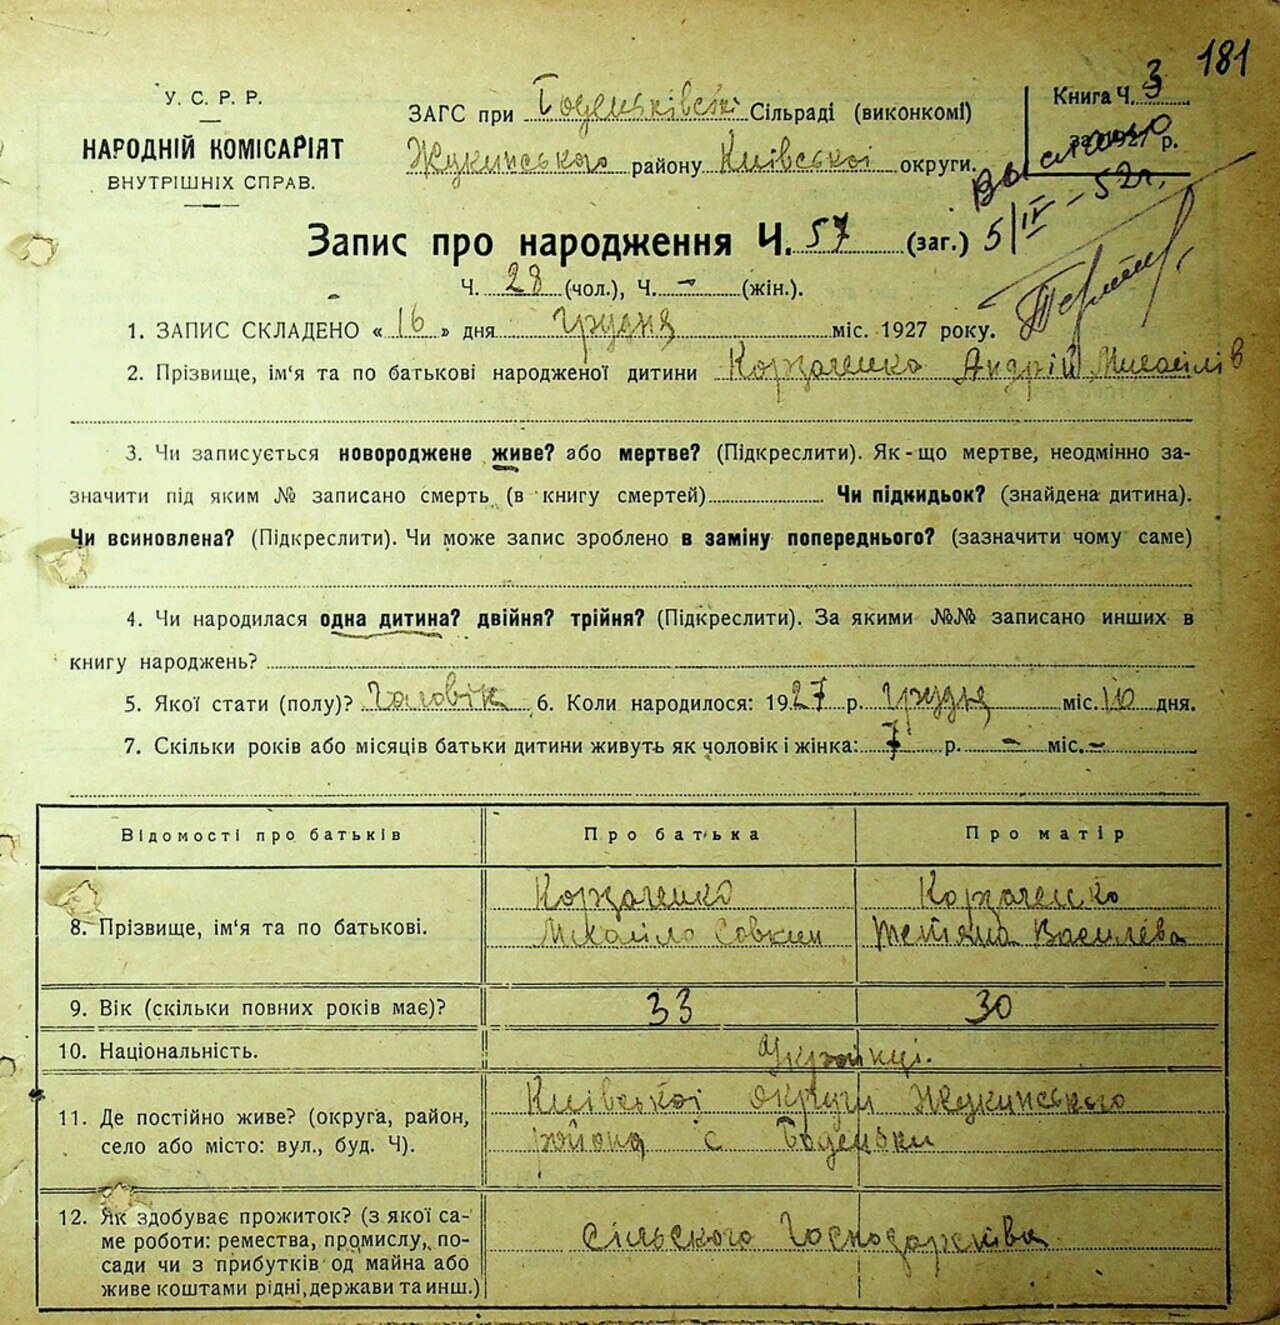 181
У. С. Р. Р.
НАРОДНІЙ КОМІСАРІЯТ
ВНУТРІШНІХ СПРАВ.
ЗАГС при Боденьківські Сільраді (виконкомі)
Жукинського району Київської округи.
Книга Ч. 3
за 1927 р.
Выслано
5/IV - 52г.
Запис про народження Ч. 57 (заг.)
Ч. 28 (чол.), Ч. - (жін.).
1. ЗАПИС СКЛАДЕНО «16» дня грудня міс. 1927 року.
2. Прізвище, ім'я та по батькові народженої дитини Корзаченко Андрій Михайлів
3. Чи записується новороджене живе? або мертве? (Підкреслити). Як-що мертве, неодмінно за-
значити під яким № записано смерть (в книгу смертей) Чи підкидьок? (знайдена дитина).
Чи всиновлена? (Підкреслити). Чи може запис зроблено в заміну попереднього? (зазначити чому саме)
4. Чи народилася одна дитина? двійня? трійня? (Підкреслити). За якими №№ записано инших в
книгу народжень?
5. Якої стати (полу)? Чоловік 6. Коли народилося: 1927 р. грудня міс. 10 дня.
7. Скільки років або місяців батьки дитини живуть як чоловік і жінка: 7 р. - міс. -
Відомості про батьків Про батька Про матір
8. Прізвище, ім'я та по батькові.
Корзаченко
Міхайло Совкин
Корзаченко
Тетяна Василева
9. Вік (скільки повних років має)? 33 30
10. Національність. Українці.
11. Де постійно живе? (округа, район,
село або місто: вул., буд. Ч).
Київської округи Жукинського
району с Боденьки
12. Як здобуває прожиток? (з якої са-
ме роботи: ремества, промислу, по-
сади чи з прибутків од майна або
живе коштами рідні, держави та инш.)
Сільского Господарківа